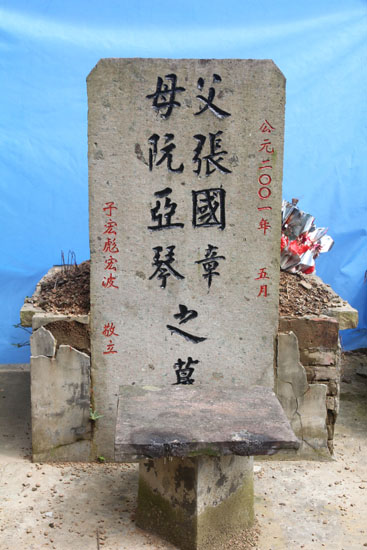 公元二〇〇一年 五月
父張國章
母阮亞琴
之墓
子宏彪宏波 敬立